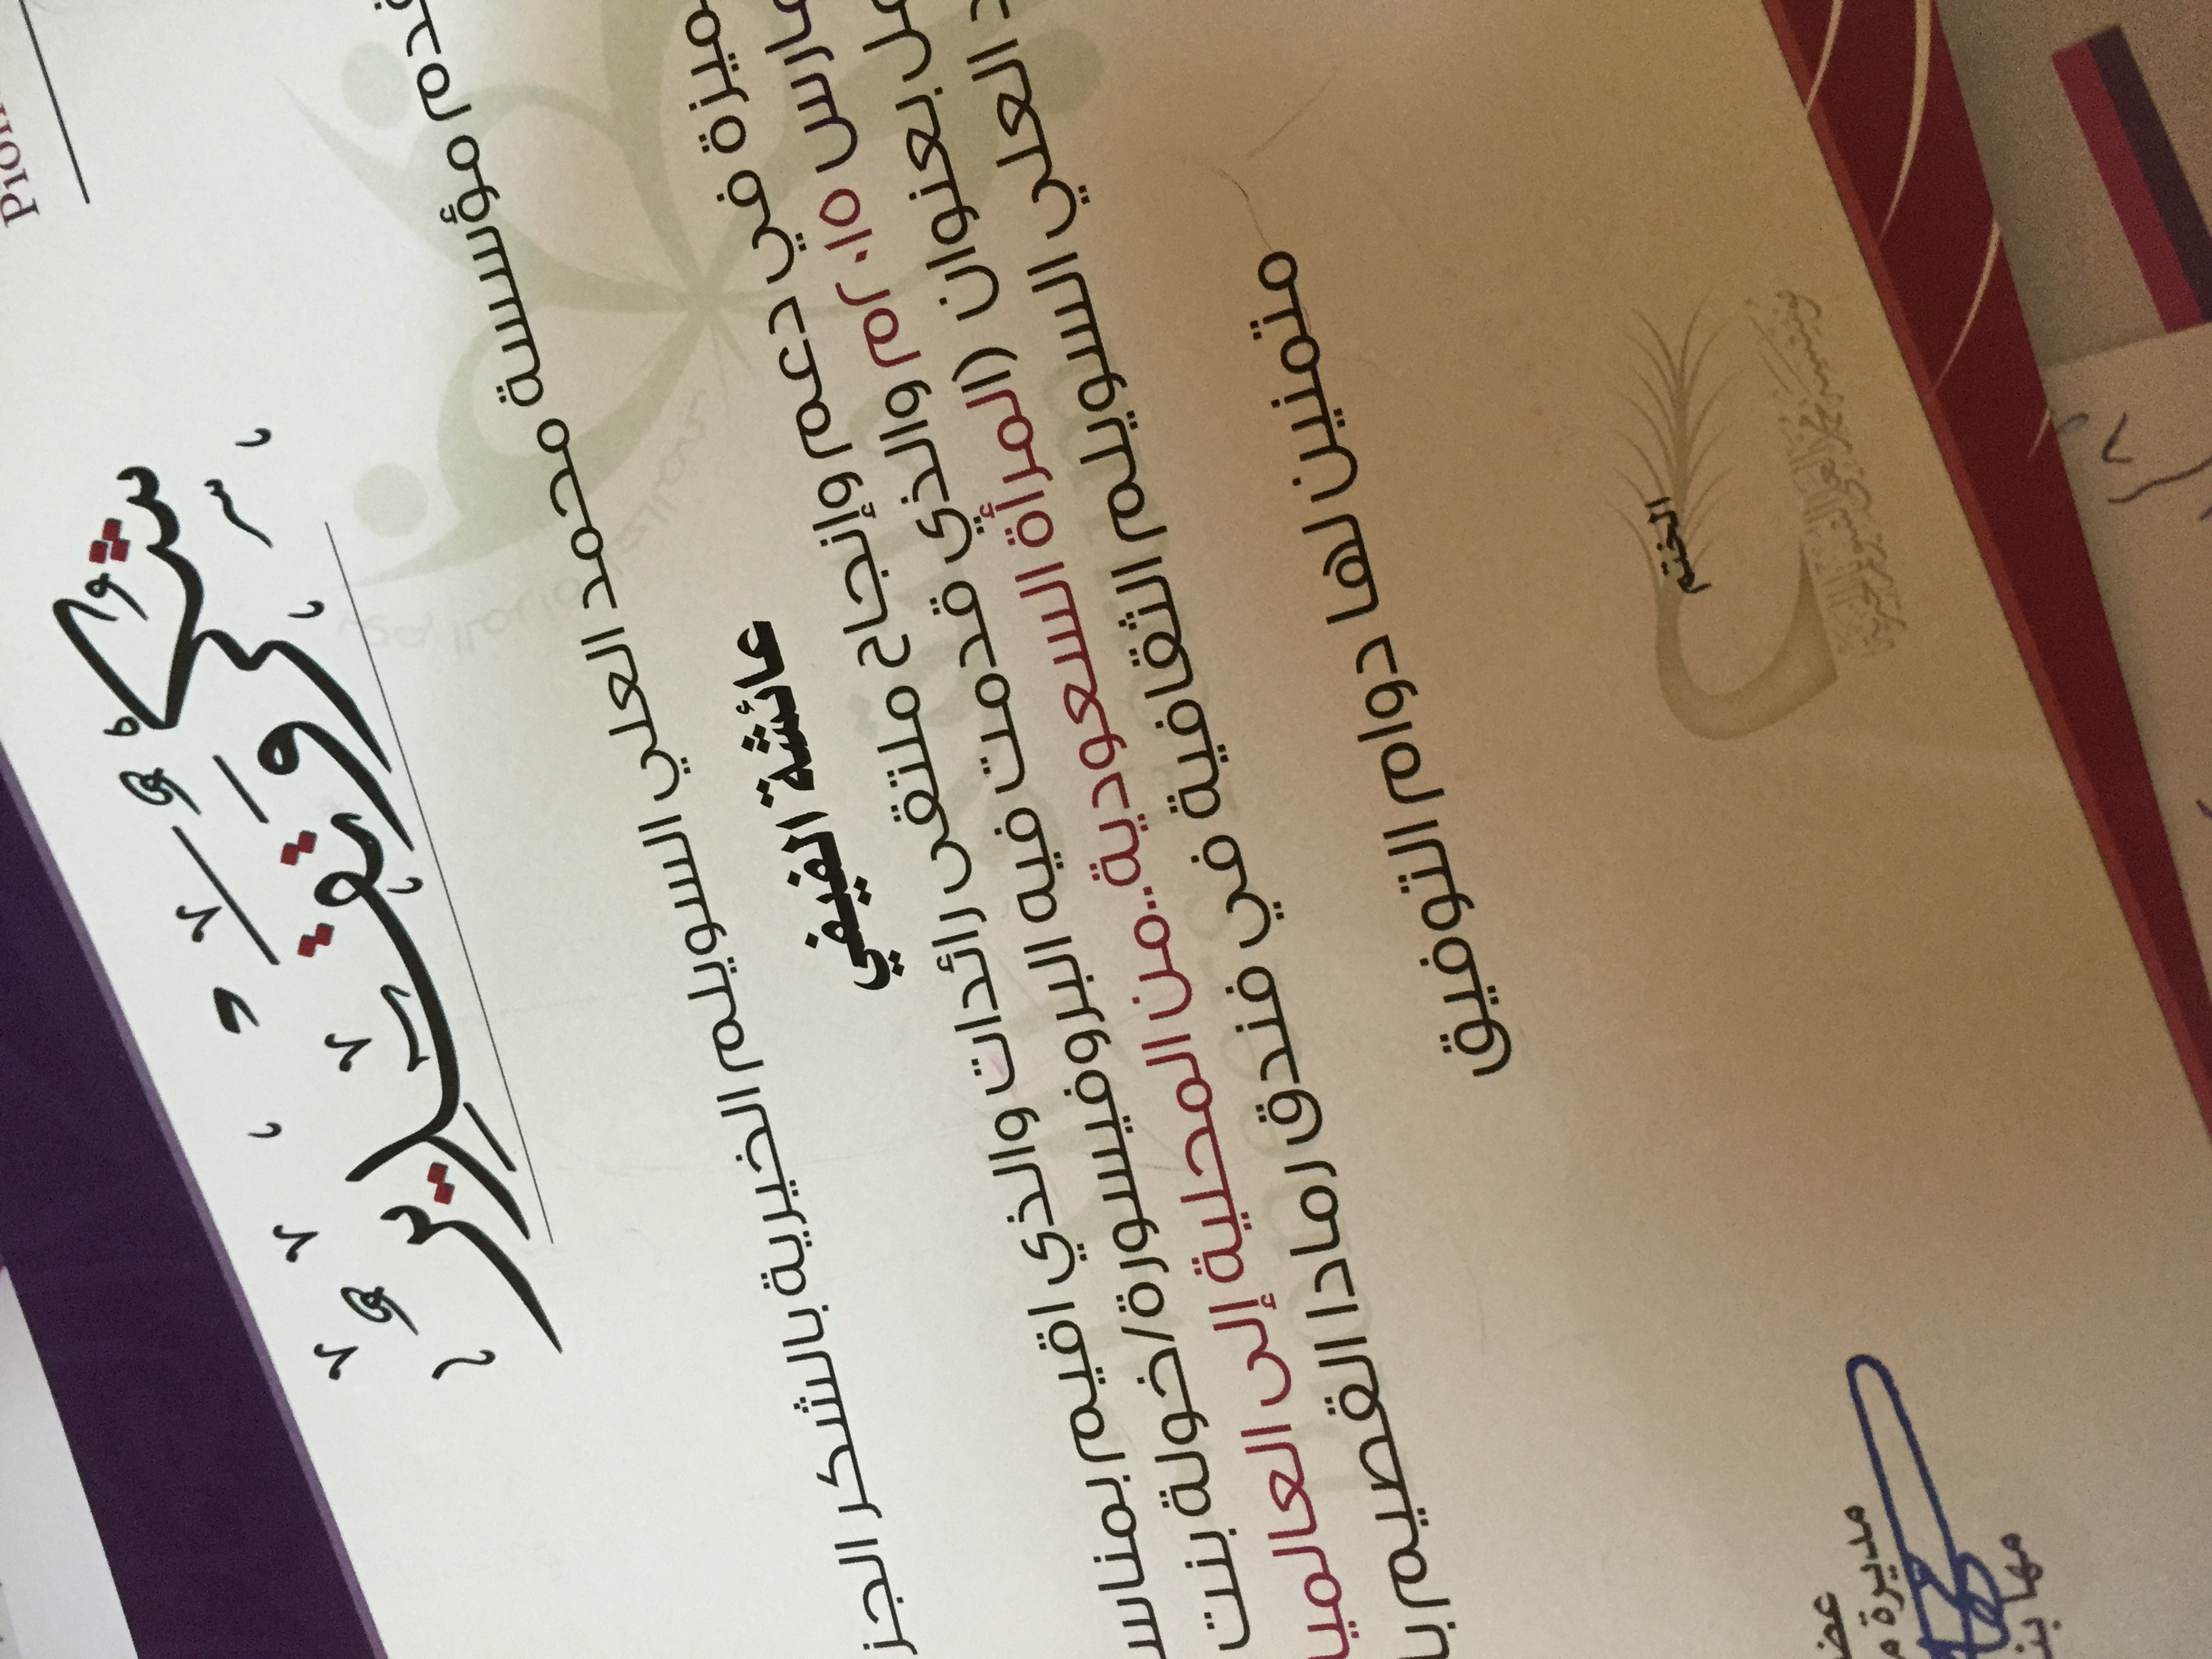 شكر وتقدير
مؤسسة محمد العلي السويلم الخيرية بالشكر
عائشة الفيفي
في دعم وإنجاح ملتقى رائدات والذي اقيم
مارس ٢٠١٥م والذي قدمت فيه البروفيسورة/خولة بنت
بعنوان (المرأة السعودية..من المحلية إلى
العلي السويلم الثقافية في فندق رمادا القصيم
متمنين لها دوام التوفيق
الختم
مديرة
مها